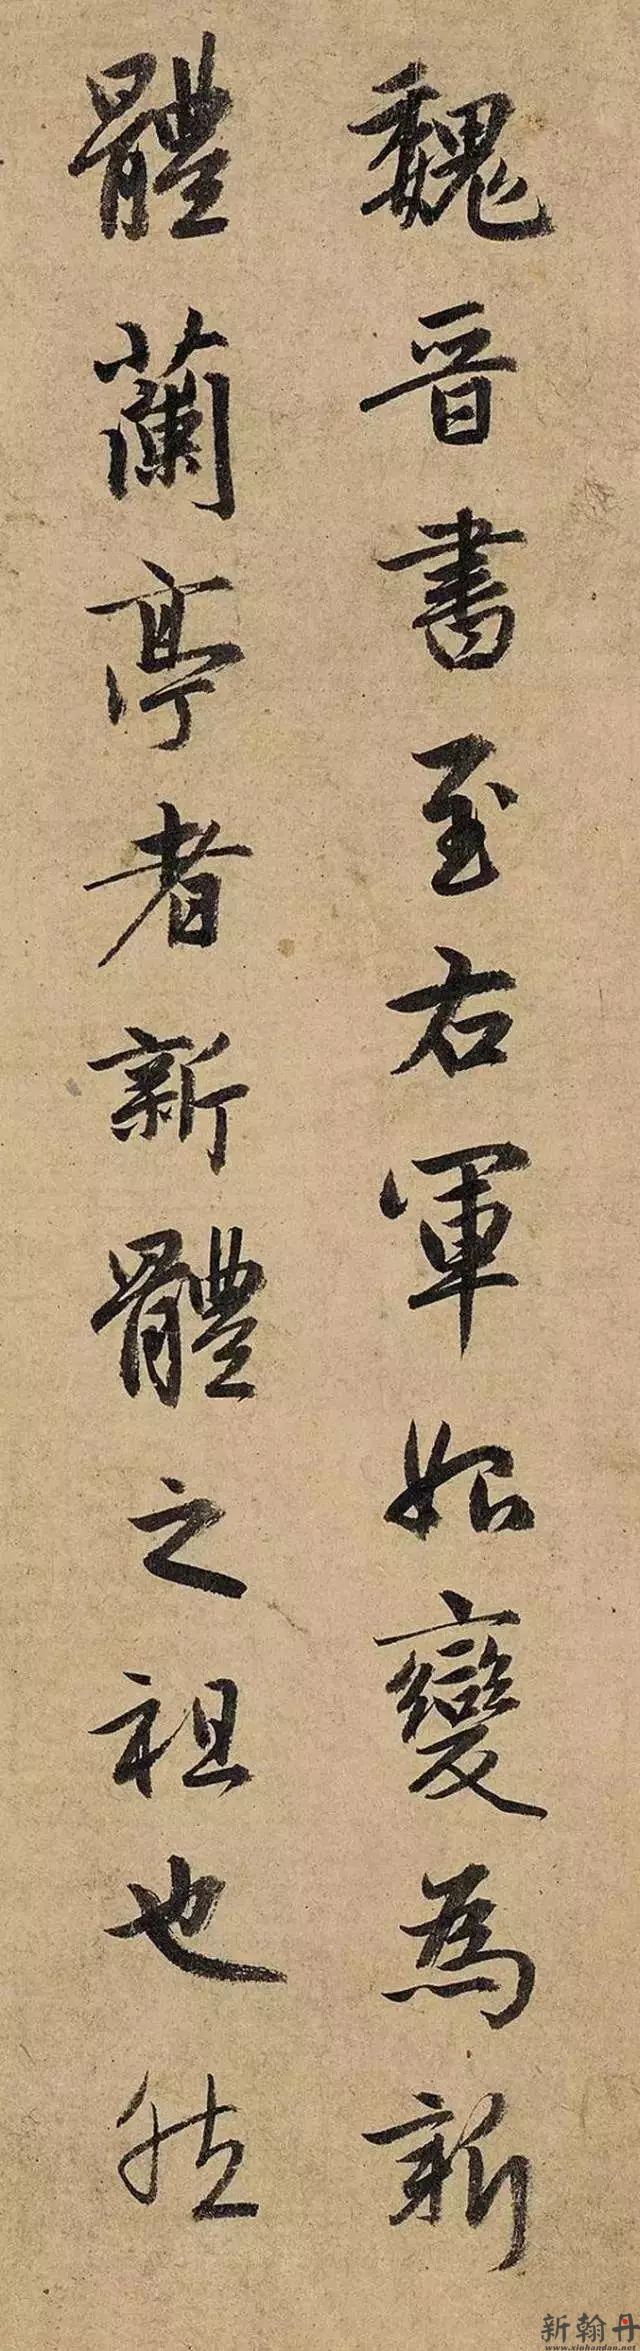 魏晉書至右軍始變為新
體蘭亭者新體之祖也然
新翰丹
www.xinhandan.net